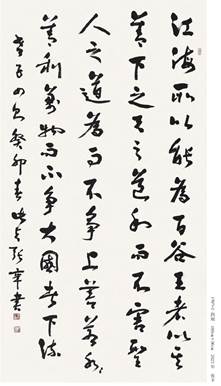 江海所以能為百谷王者以其
善下之天之道利而不害聖
人之道為而不爭上善若水
善利萬物而不爭大國者下流
老子四句癸卯春書